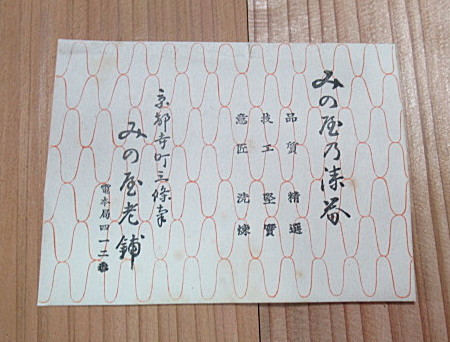 みの屋乃漆器
品質 精選
技工 堅實
意匠 洗煉
京都寺町三條南
みの屋老舗
電本局四一二